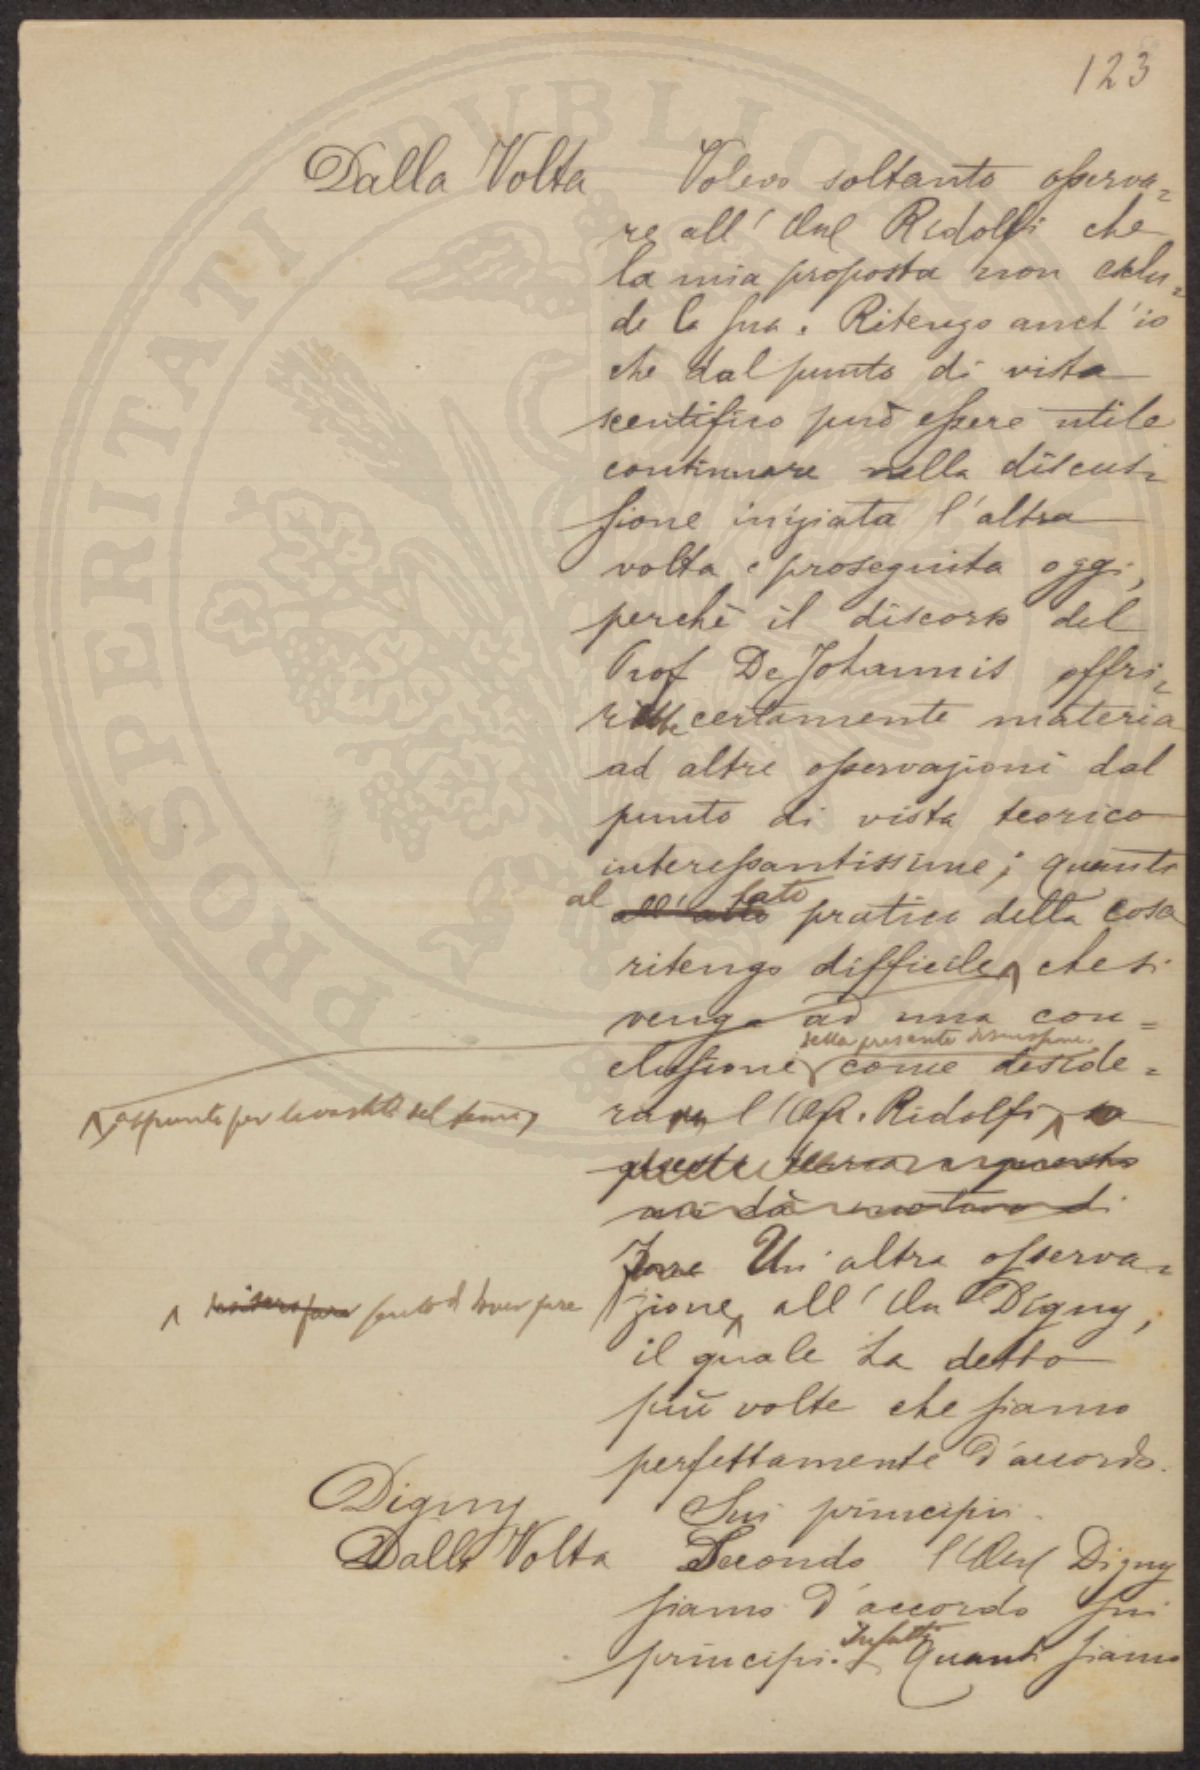 123
Dalla Volta Volevo soltanto osserva=
re all' On Ridolfi che
la mia proposta non esclu=
de la sua. Ritengo anch'io
che dal punto di vista
scentifico può essere utile
continuare nella discus=
sione iniziata l'altra
volta e proseguita oggi,
perchè il discorso del
Prof De Johannis offri=
rebbe certamente materia
ad altre osservazioni dal
punto di vista teorico
interessantissime; quanto
al lato pratico della cosa
ritengo difficile che si
venga ad una con=
della presente discussione
clusione come deside=
ra l'On. Ridolfi
appunto per la vastità del tema,
Un'altra osserva=
debbo fare
zione all'On Digny,
il quale ha detto
più volte che siamo
perfettamente d'accordo.
Digny Sui principii.
Dalla Volta Secondo l'On Digny
siamo d'accordo sui
Infatti
principi. Quanti siamo
PROSPERITATI PVBLICAE